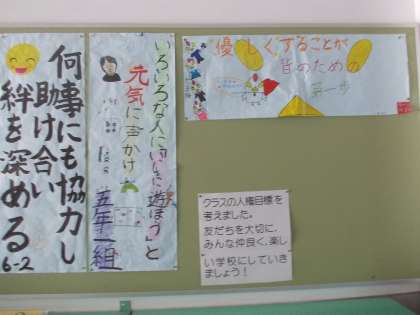 何事にも協力し
助け合い
絆を深める
6-2
いろいろな人に「いっしょに遊ぼう」と
元気に声かけ
五年一組
優しくすることが
皆のための
第一歩
クラスの人権目標を
考えました。
友だちを大切に、
みんな仲良く、楽し
い学校にしていき
ましょう！